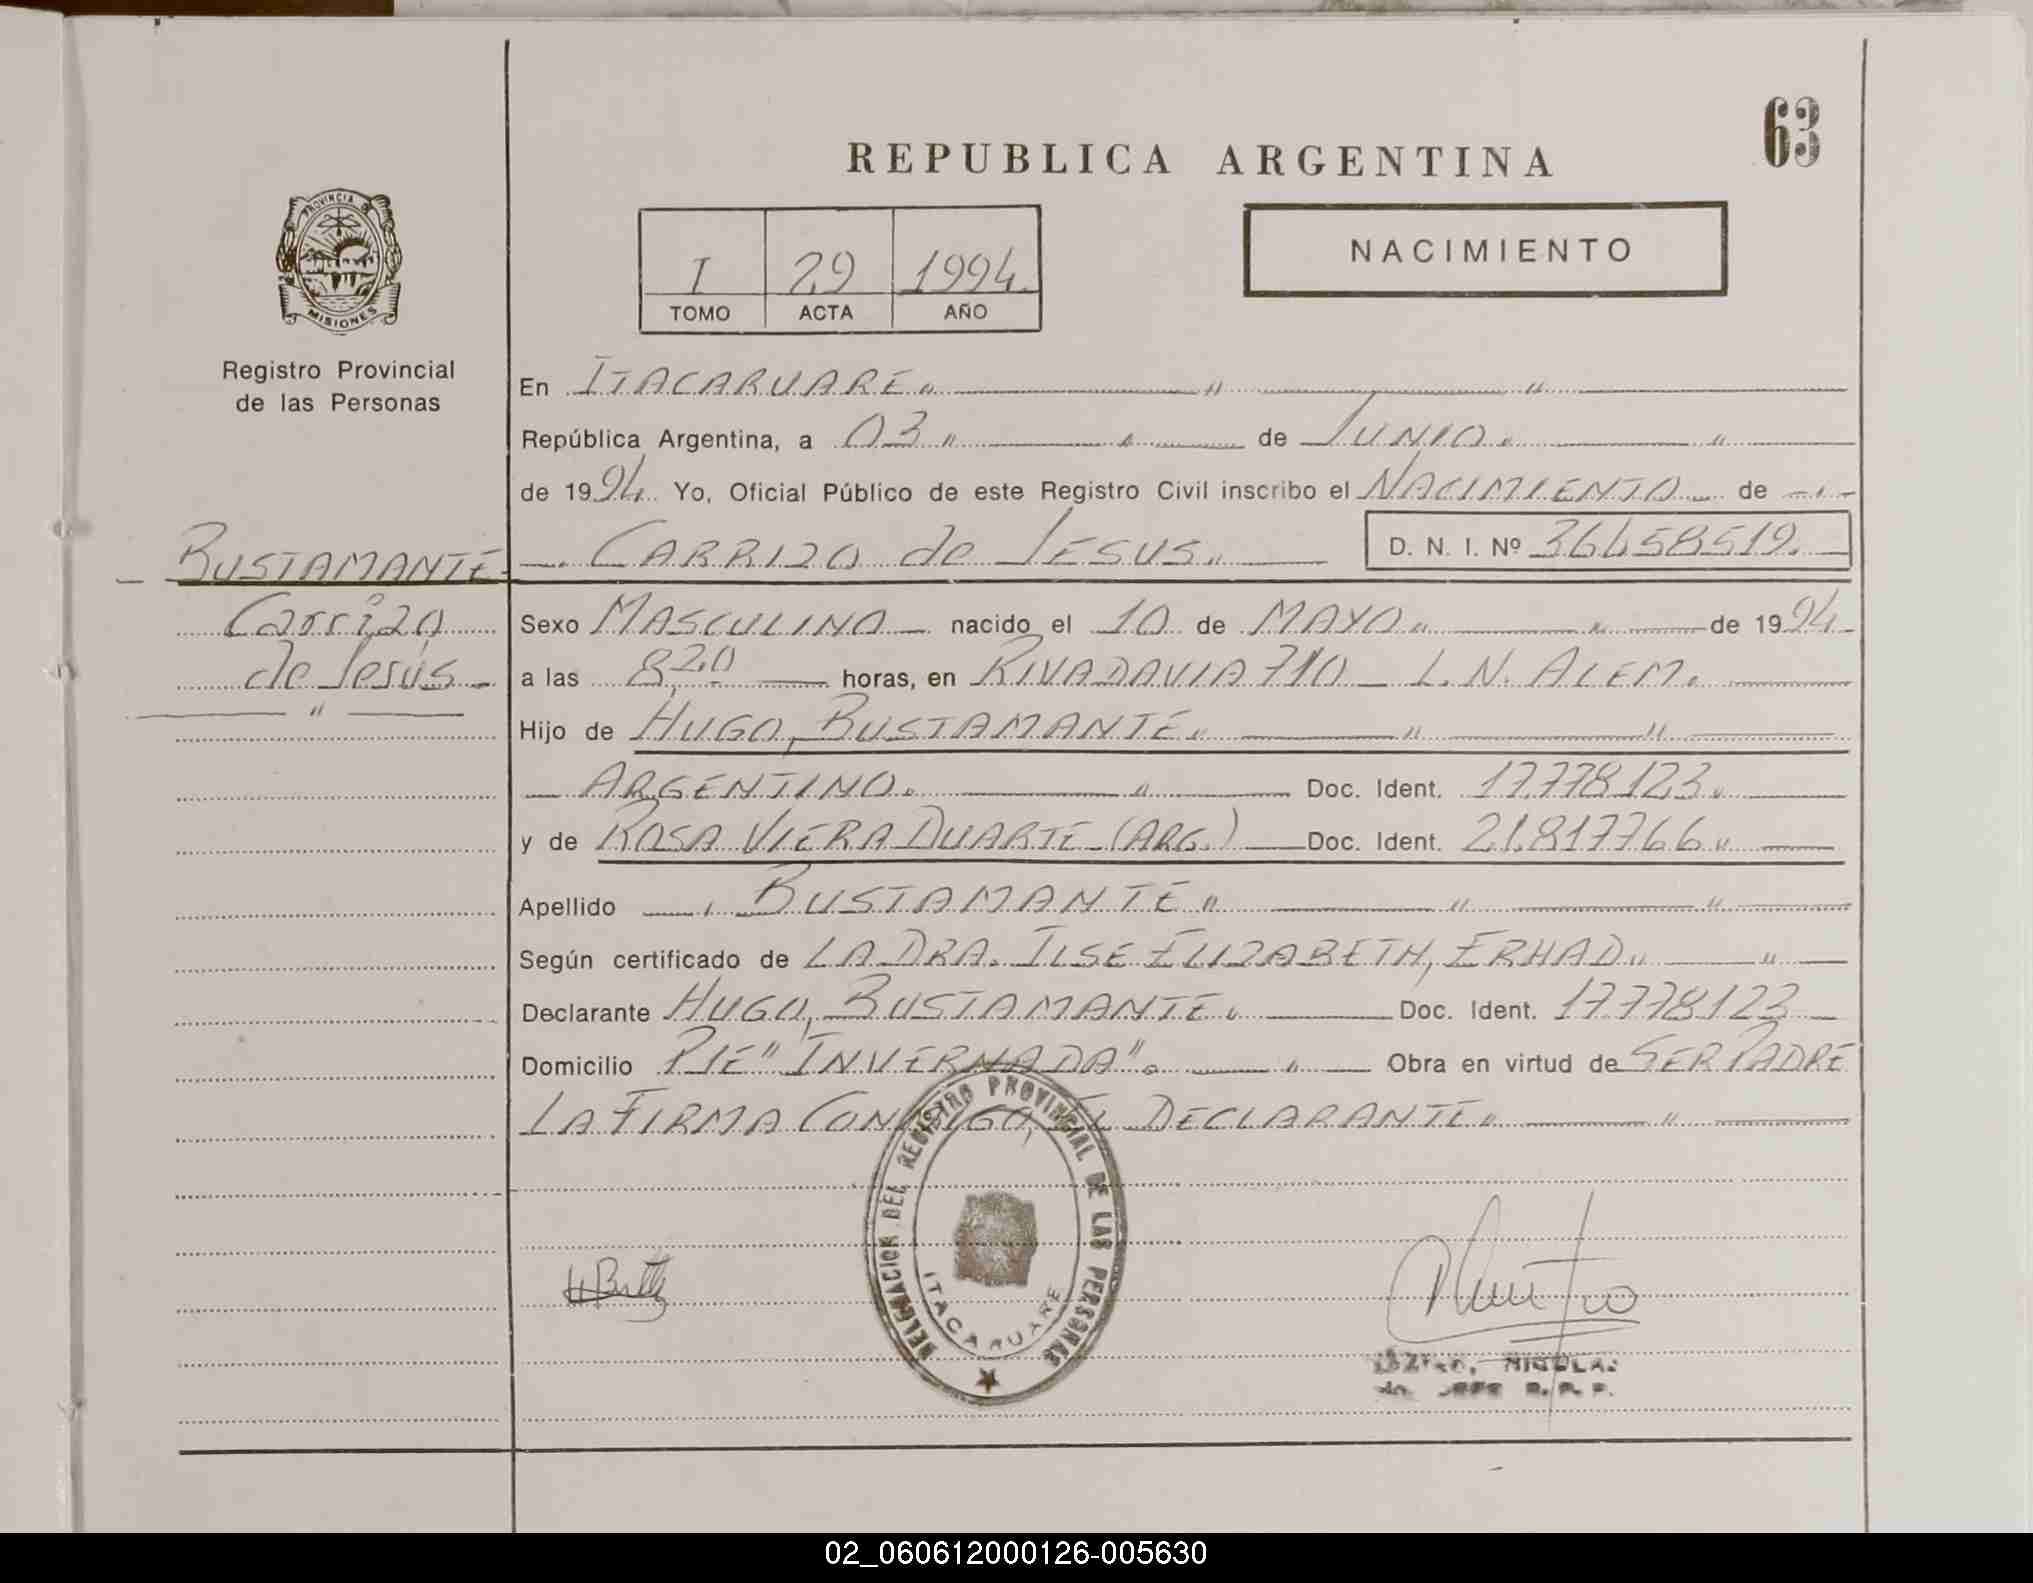 63
REPUBLICA ARGENTINA
PROVINCIA DE
MISIONES
NACIMIENTO
I 29 1994.
TOMO ACTA AÑO
Registro Provincial
de las Personas
En ITACARUARE " " "
República Argentina, a 03 " " de JUNIO. "
de 1994. Yo, Oficial Público de este Registro Civil inscribo el NACIMIENTO de
BUSTAMANTE CARRIZO de JESUS. D. N. I. Nº 36458519.
Carrizo
de Jesús
"
Sexo MASCULINO nacido el 10 de MAYO " " de 1994
a las 8,20 horas, en RIVADAVIA 710 - L. N. ALEM.
Hijo de HUGO, BUSTAMANTE " " "
ARGENTINO. " Doc. Ident. 17.778.123.
y de ROSA VIERA DUARTE (ARG.) Doc. Ident. 21.817766 "
Apellido BUSTAMANTE " " "
Según certificado de LA DRA. ILSE ELIZABETH, ERHAD " "
Declarante HUGO, BUSTAMANTE. Doc. Ident. 17778123
Domicilio PJE "INVERNADA". " Obra en virtud de SER PADRE
LA FIRMA CONMIGO, EL DECLARANTE " "
DELEGACION DEL REGISTRO PROVINCIAL DE LAS PERSONAS
ITACARUARE
NICOLAS
JEFE R. P. P.
02_060612000126-005630